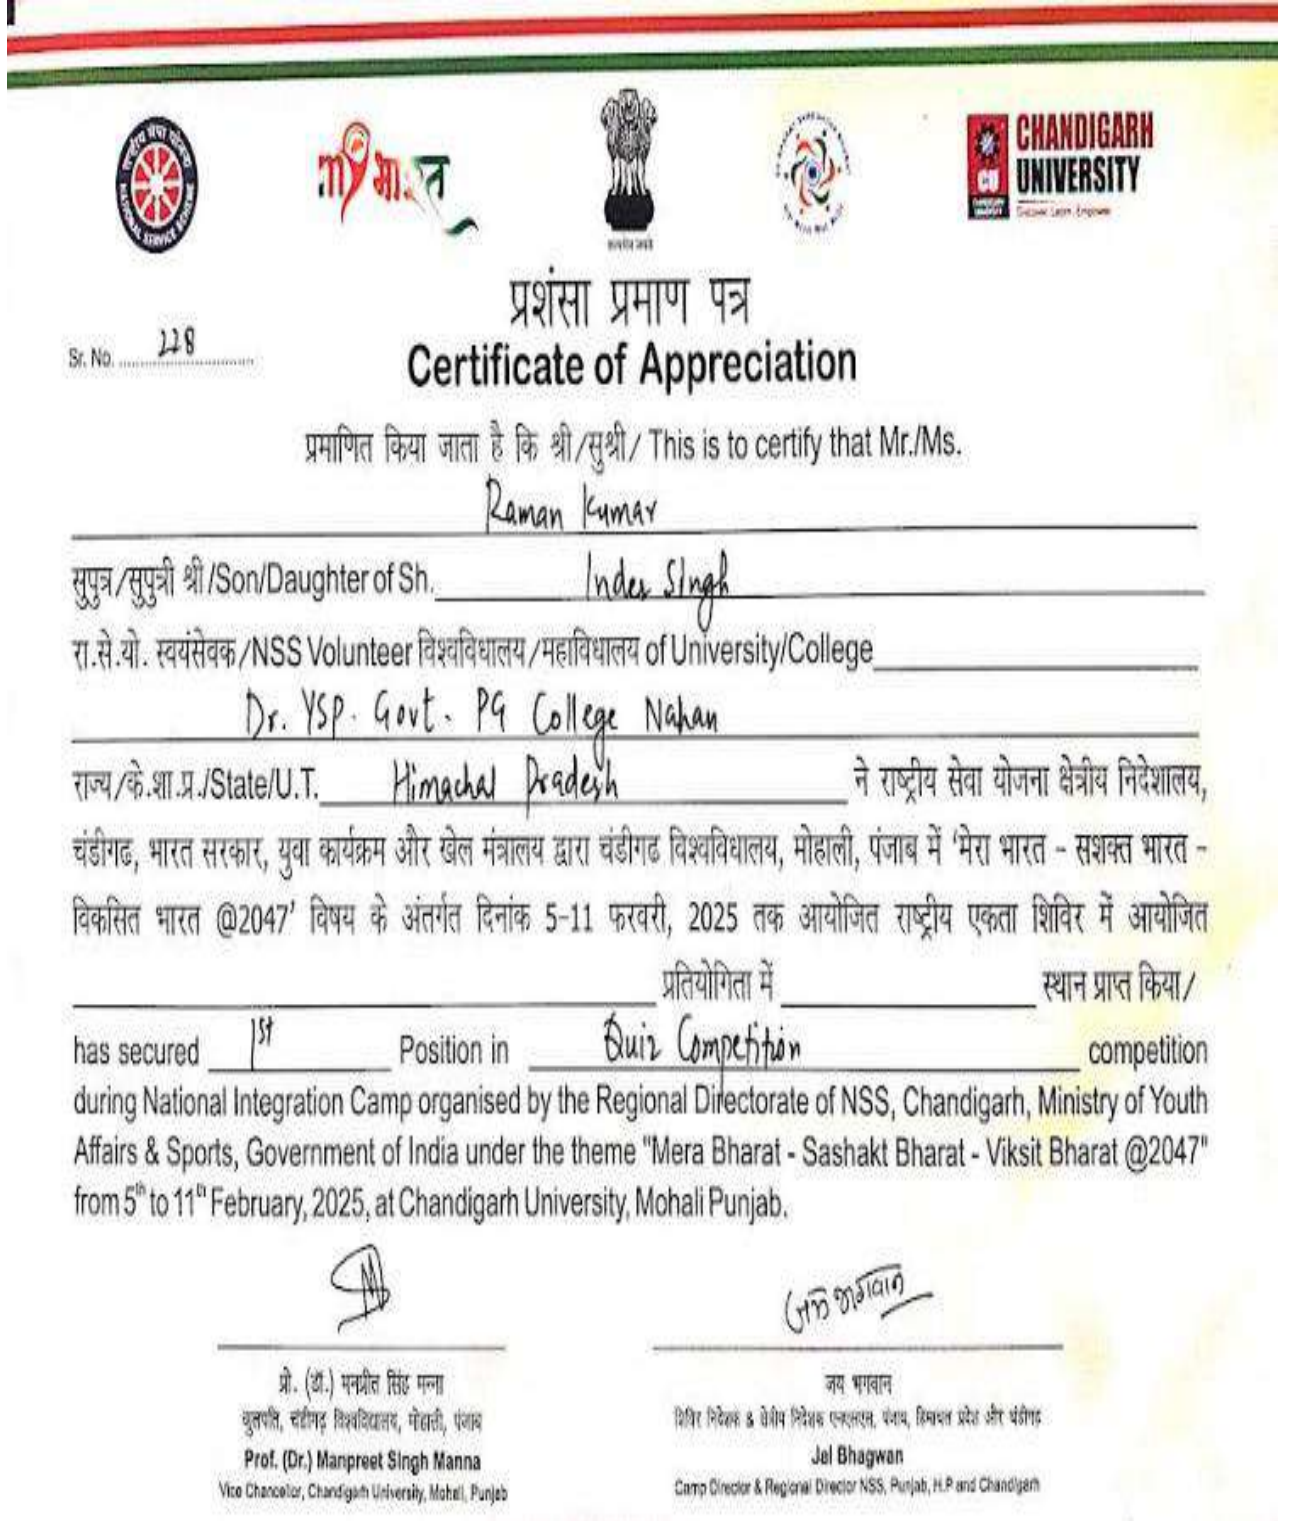 राष्ट्रीय सेवा योजना
NATIONAL SERVICE SCHEME
my भारत
सत्यमेव जयते
CHANDIGARH
UNIVERSITY
CU
CHANDIGARH
UNIVERSITY
Discover. Learn. Empower.
प्रशंसा प्रमाण पत्र
Sr. No. 228
Certificate of Appreciation
प्रमाणित किया जाता है कि श्री/सुश्री/ This is to certify that Mr./Ms.
Raman Kumar
सुपुत्र/सुपुत्री श्री/Son/Daughter of Sh. Inder Singh
रा.से.यो. स्वयंसेवक/NSS Volunteer विश्वविधालय/महाविधालय of University/College
Dr. YSP. Govt. PG College Nahan
राज्य/के.शा.प्र./State/U.T. Himachal Pradesh ने राष्ट्रीय सेवा योजना क्षेत्रीय निदेशालय,
चंडीगढ, भारत सरकार, युवा कार्यक्रम और खेल मंत्रालय द्वारा चंडीगढ विश्वविधालय, मोहाली, पंजाब में 'मेरा भारत - सशक्त भारत -
विकसित भारत @2047' विषय के अंतर्गत दिनांक 5-11 फरवरी, 2025 तक आयोजित राष्ट्रीय एकता शिविर में आयोजित
प्रतियोगिता में स्थान प्राप्त किया/
has secured 1st Position in Quiz Competition competition
during National Integration Camp organised by the Regional Directorate of NSS, Chandigarh, Ministry of Youth
Affairs & Sports, Government of India under the theme "Mera Bharat - Sashakt Bharat - Viksit Bharat @2047"
from 5th to 11th February, 2025, at Chandigarh University, Mohali Punjab.
जय भगवान
प्रो. (डॉ.) मनप्रीत सिंह मन्ना
कुलपति, चंडीगढ़ विश्वविद्यालय, मोहाली, पंजाब
Prof. (Dr.) Manpreet Singh Manna
Vice Chancellor, Chandigarh University, Mohali, Punjab
जय भगवान
शिविर निदेशक & क्षेत्रीय निदेशक एनएसएस, पंजाब, हिमाचल प्रदेश और चंडीगढ़
Jai Bhagwan
Camp Director & Regional Director NSS, Punjab, H.P and Chandigarh